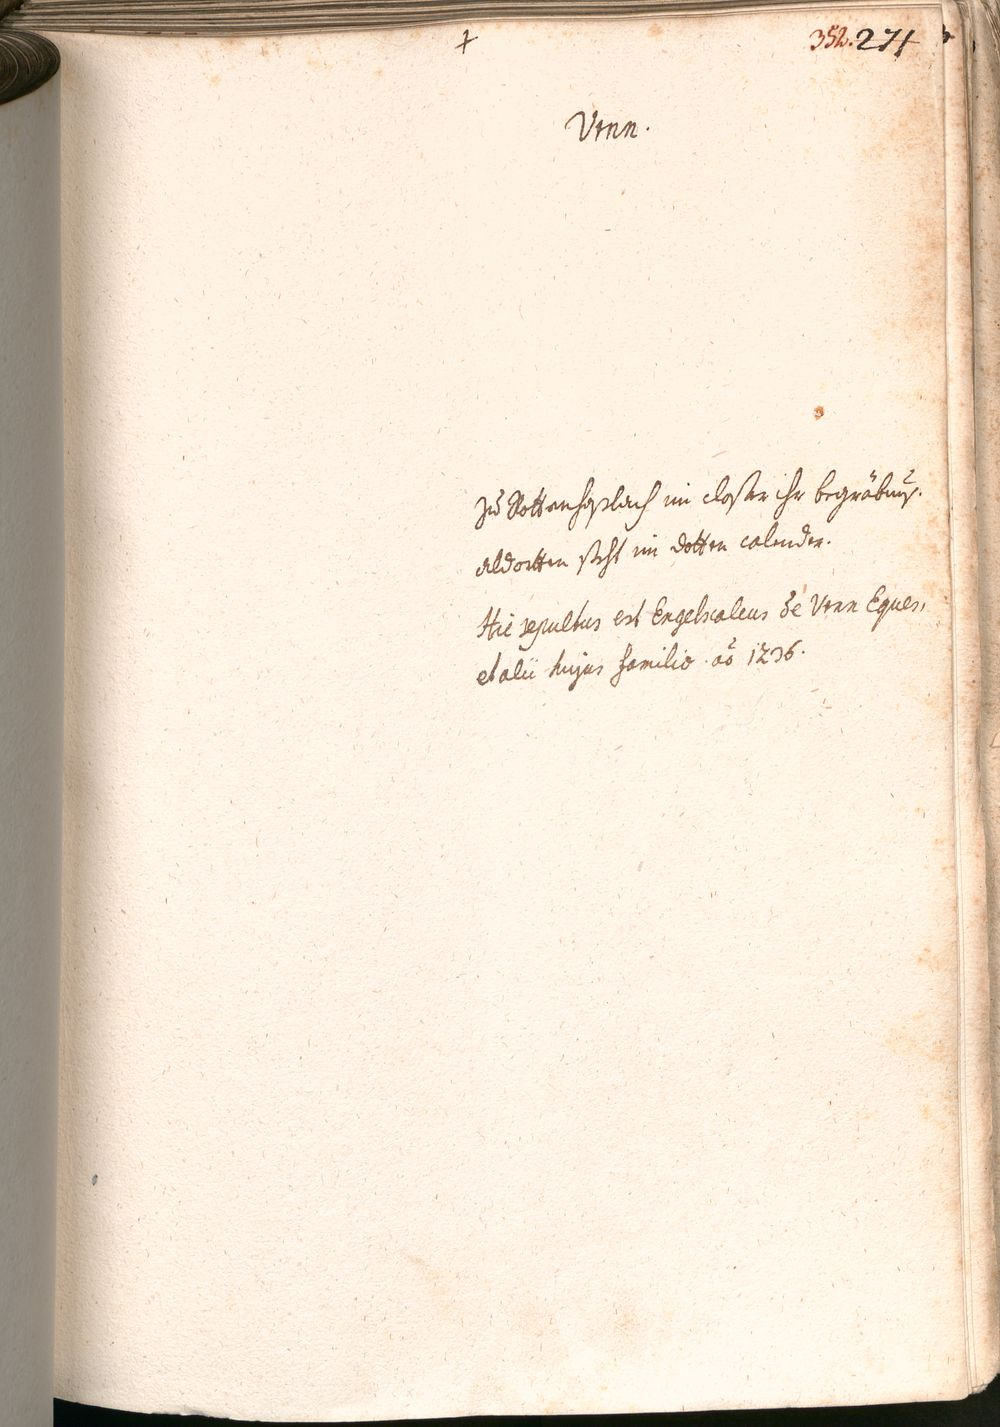 +
352. 271
Venn.
Zu Rottenhaslach im closter ihr begräbnuß.
aldortten steht im dotten calender.
Hic sepultus est Engelscalcus de Venn Eques,
et alii hujus familie . aõ 1236.